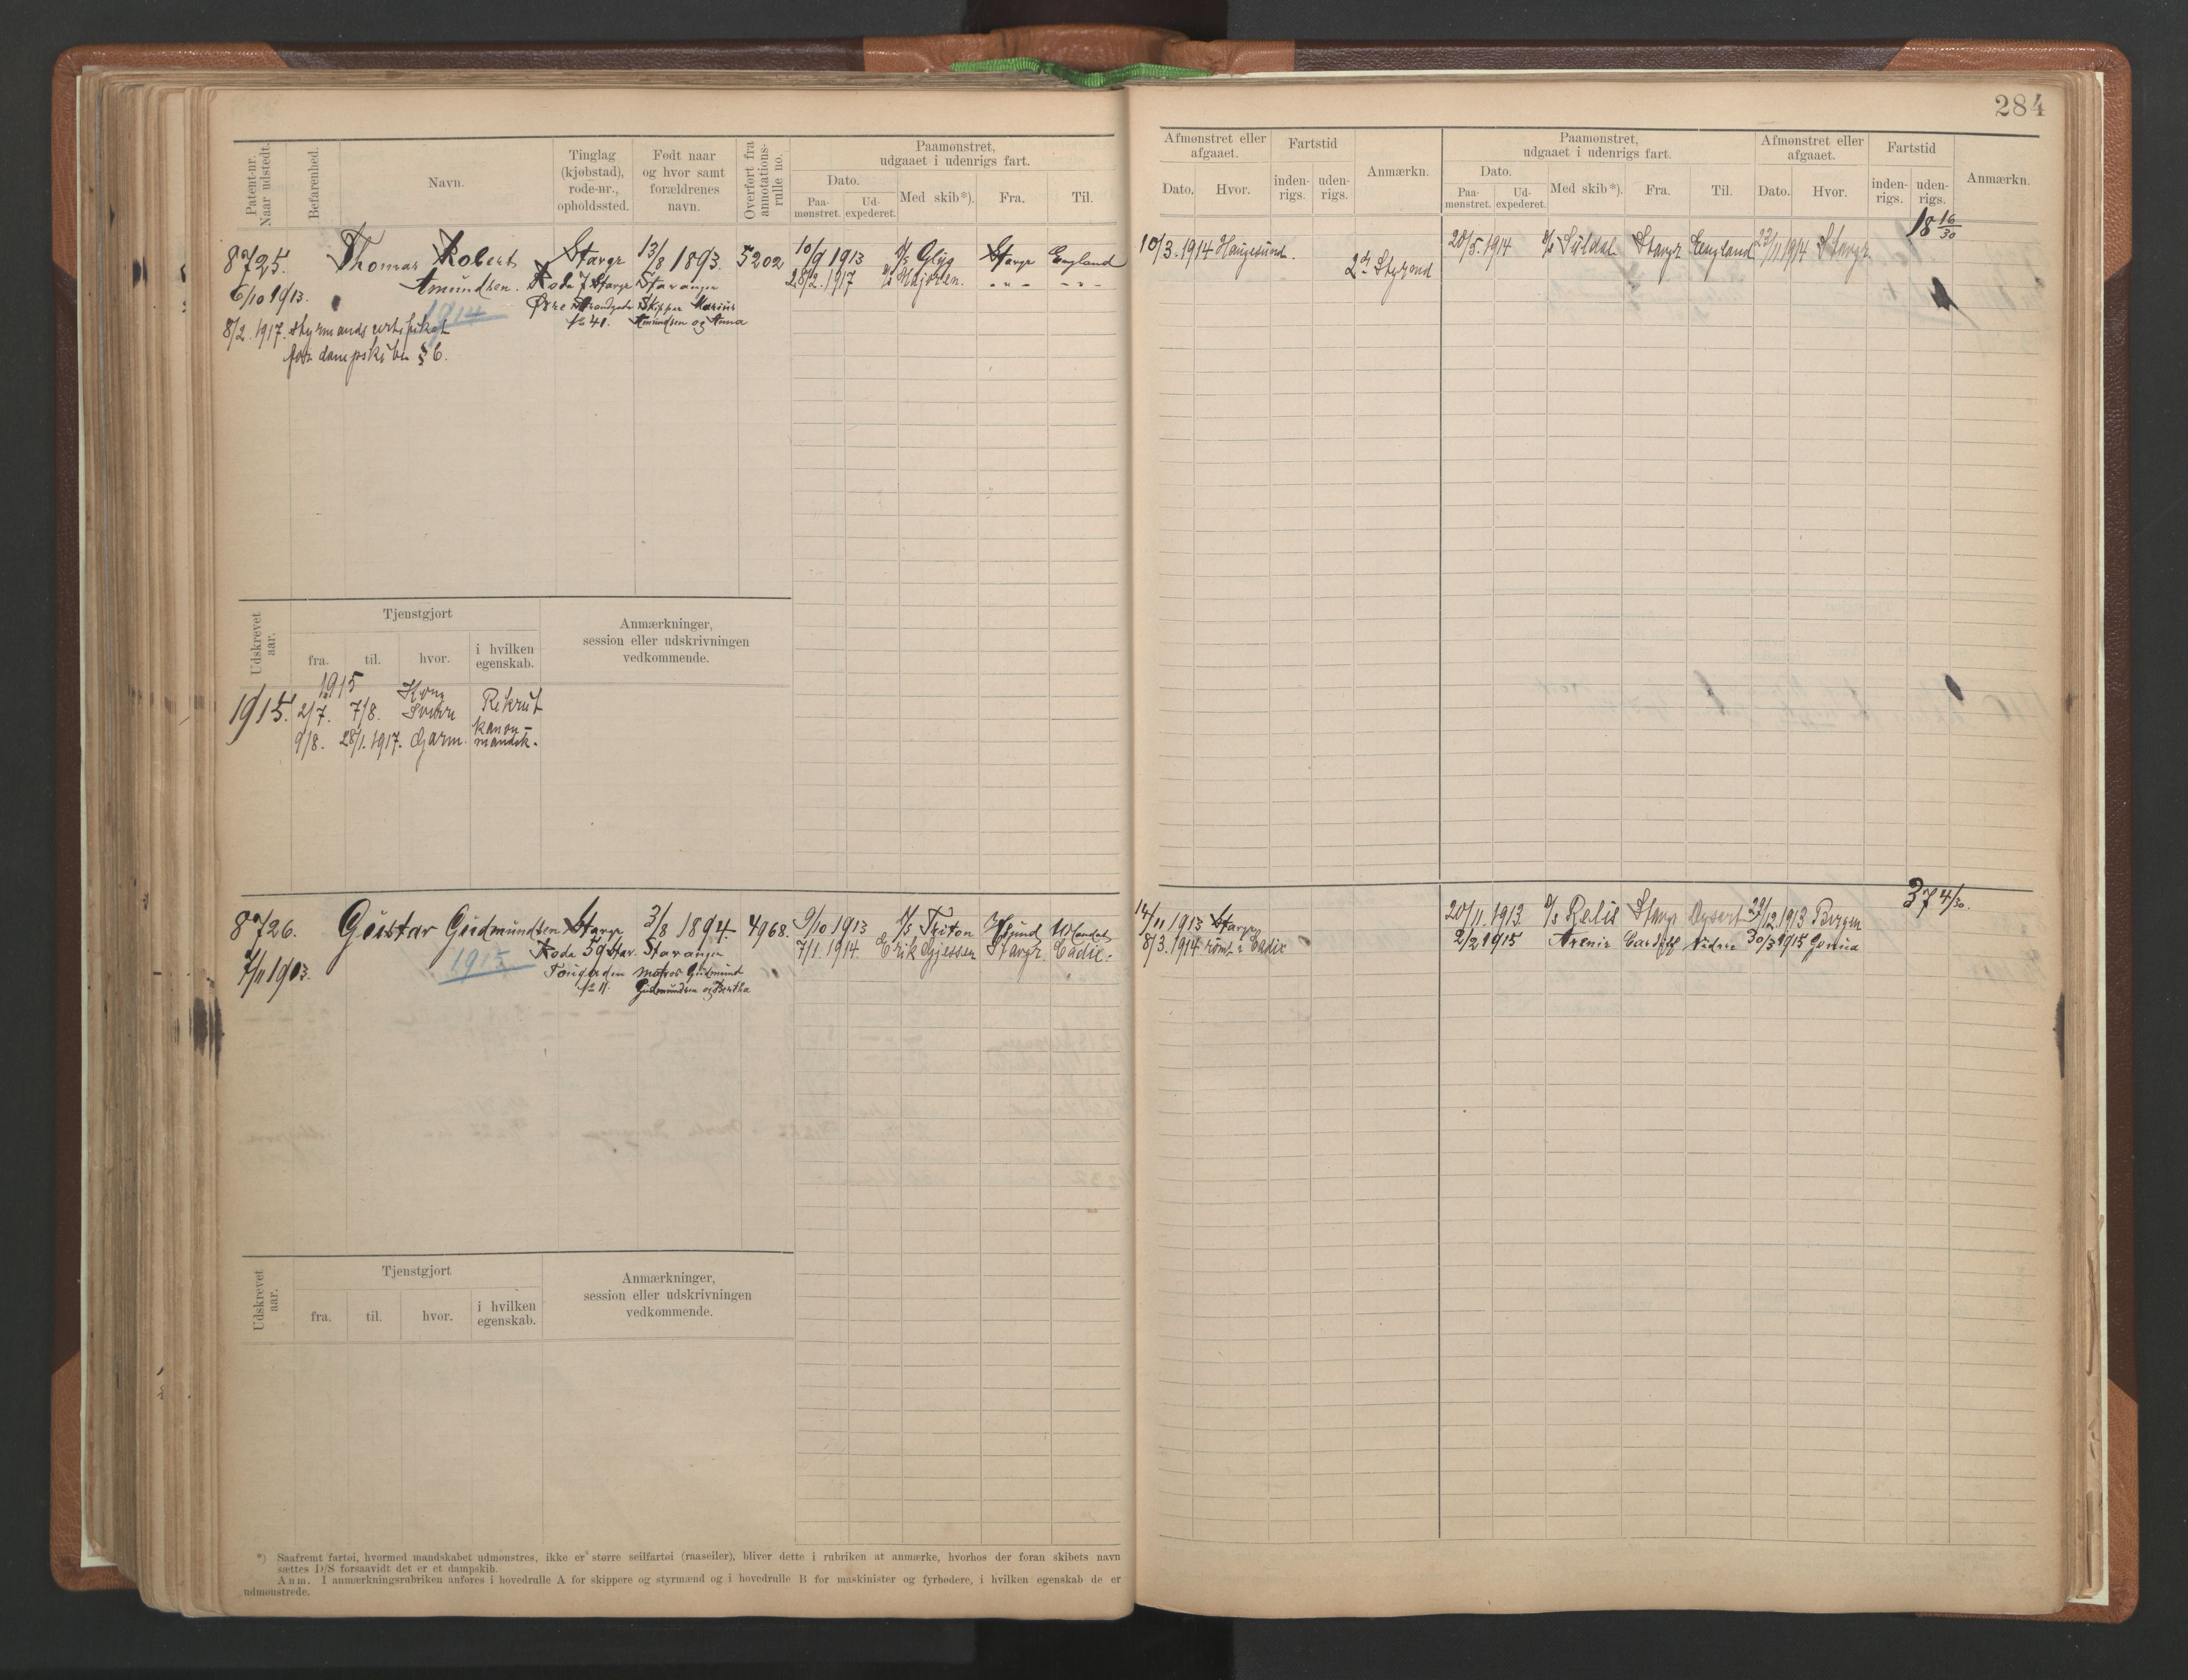 284
Patent-nr. Naar udstedt.
Befarenhed.
Navn.
Tinglag (kjøbstad), rode-nr., opholdssted.
Født naar og hvor samt forældrenes navn.
Overført fra annotations-rulle no.
Paamønstret, udgaaet i udenrigs fart.
Dato.
Paa-mønstret.
Ud-expederet.
Med skib*).
Fra.
Til.
Afmønstret eller afgaaet.
Dato.
Hvor.
Fartstid
inden-rigs.
uden-rigs.
Anmærkn.
Paamønstret, udgaaet i udenrigs fart.
Dato.
Paa-mønstret.
Ud-expederet.
Med skib*).
Fra.
Til.
Afmønstret eller afgaaet.
Dato.
Hvor.
Fartstid
inden-rigs.
uden-rigs.
Anmærkn.
18 16/30
8725. Thomas Robert Stavgr 13/8 1893. 5202 10/9 1913 D/s Glyg Stavgr England 10/3. 1914 Haugesund. 20/5. 1914 D/s Suldal Stavgr England 23/11 1914 Stavgr
6/10 1913. Amundsen. Rode 7 Stavgr Stavanger 28/2. 1917 2n Styrmd
1914 Øvre Strandgade Skipper Marius
№ 41. Amundsen og Anna
8/2. 1917. Styrmandscertifikat
for dampskibe § 6.
Udskrevet aar.
Tjenstgjort
fra.
til.
hvor.
i hvilken egenskab.
Anmærkninger, session eller udskrivningen vedkommende.
1915
1915. 2/7. 7/8. Kong Sverre Rekrut
9/8. 28/1. 1917. Garm. kanon-mandsk.
37 4/30.
8726. Gustav Gudmundsen Stavgr 3/8 1894. 4968. 9/10 1913 D/s Triton Hsund Udlandet 14/11 1913 Stavgr 20/11. 1913 D/s Retis Stavgr Dysart 29/12 1913 Bergen
7/11 1913. 1915 Rode 59 Stav. Stavanger 7/1. 1914. Erik Gjessen Stavgr. Cadix. 8/3. 1914 rømt i Cadix 2/2 1915 Cardiff 30/3 1915 Genua
Matros Gudmund
№ 11. Gudmundsen og Bertha
Udskrevet aar.
Tjenstgjort
fra.
til.
hvor.
i hvilken egenskab.
Anmærkninger, session eller udskrivningen vedkommende.
*) Saafremt fartøi, hvormed mandskabet udmønstres, ikke er større seilfartøi (raaseiler), bliver dette i rubriken at anmærke, hvorhos der foran skibets navn
sættes D/S forsaavidt det er et dampskib.
Anm. I anmærkningsrubriken anføres i hovedrulle A for skippere og styrmænd og i hovedrulle B for maskinister og fyrbødere, i hvilken egenskab de er
udmønstrede.